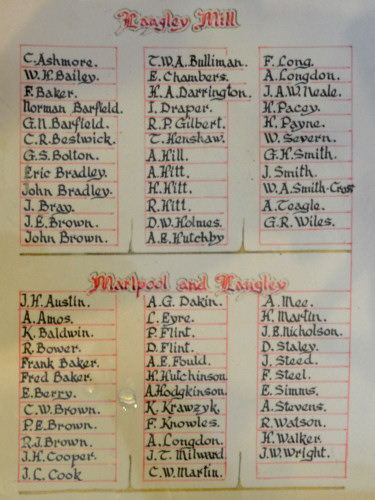 Langley Mill
C. Ashmore.
W. H. Bailey.
F. Baker.
Norman Barfield.
G. N. Barfield.
C. R. Bestwick.
G. S. Bolton.
Eric Bradley.
John Bradley.
J. Bray.
J. E. Brown.
John Brown.
T. W. A. Bulliman.
E. Chambers.
H. A. Darrington.
I. Draper.
R. P. Gilbert.
T. Henshaw.
A. Hill.
A. Hitt.
H. Hitt.
R. Hitt.
D. W. Holmes.
A. E. Hutchby
F. Long.
A. Longdon.
J. A. W. Neale.
H. Pacey.
H. Payne.
W. Severn.
G. H. Smith.
J. Smith.
W. A. Smith-Cross
A. Teagle.
G. R. Wiles.
Marlpool and Langley
J. H. Austin.
A. Amos.
K. Baldwin.
R. Bower.
Frank Baker.
Fred Baker.
E. Berry.
C. W. Brown.
P. E. Brown.
R. J. Brown.
J. H. Cooper.
J. L. Cook
A. G. Dakin.
L. Eyre.
P. Flint.
D. Flint.
A. E. Fould.
H. Hutchinson.
A. Hodgkinson.
K. Krawzyk.
F. Knowles.
A. Longdon.
J. T. Milward.
C. W. Martin.
A. Mee.
H. Martin.
J. B. Nicholson.
D. Staley.
J. Steed.
F. Steel.
E. Simms.
A. Stevens.
R. Watson.
H. Walker.
J. W. Wright.